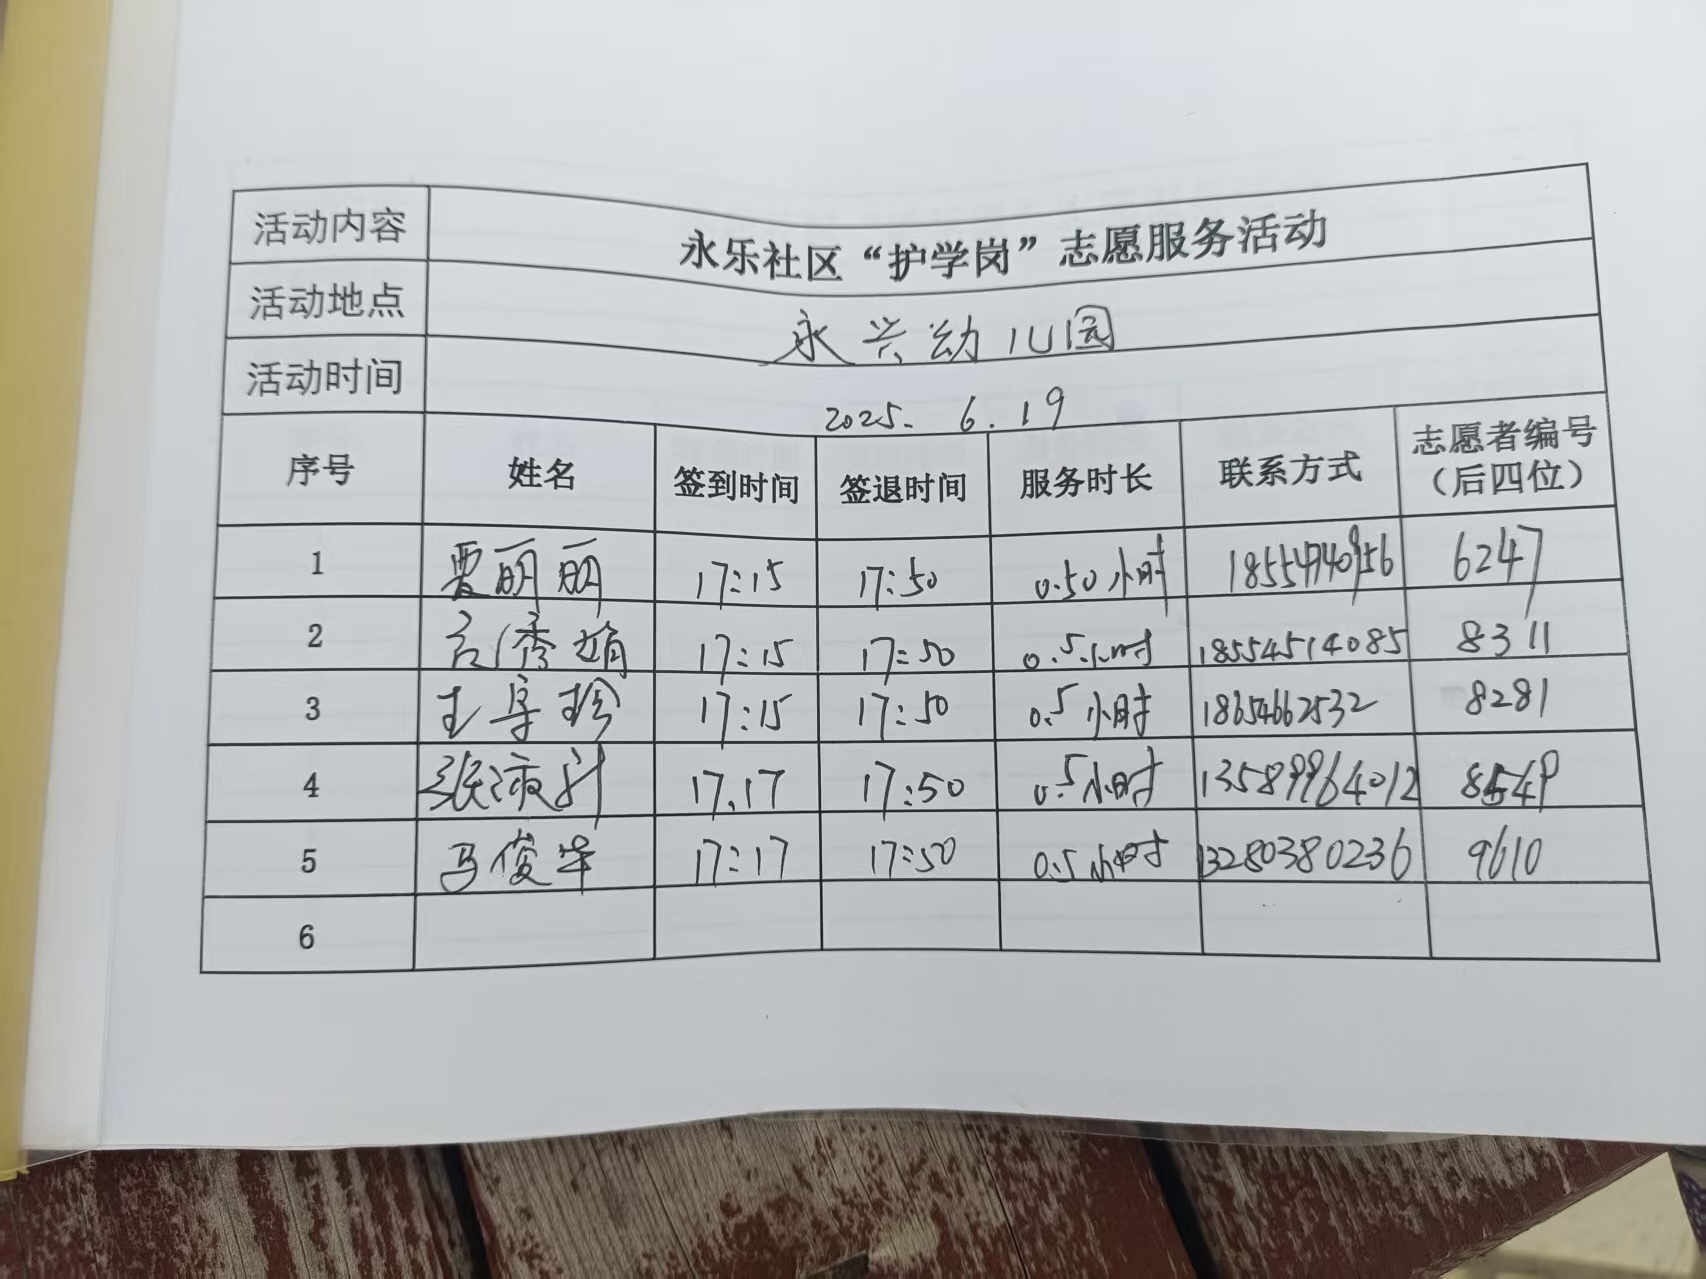 活动内容 永乐社区“护学岗”志愿服务活动
活动地点 永兴幼儿园
活动时间 2025. 6. 19
序号 姓名 签到时间 签退时间 服务时长 联系方式 志愿者编号
（后四位）
1 贾丽丽 17:15 17:50 0.50小时 6247
2 17:15 17:50 0.5小时 18554514085 8311
3 17:15 17:50 0.5小时 18654662532 8281
4 17.17 17:50 0.5小时 13589964012 8549
5 马俊华 17:17 17:50 0.5小时 13280380236 9610
6